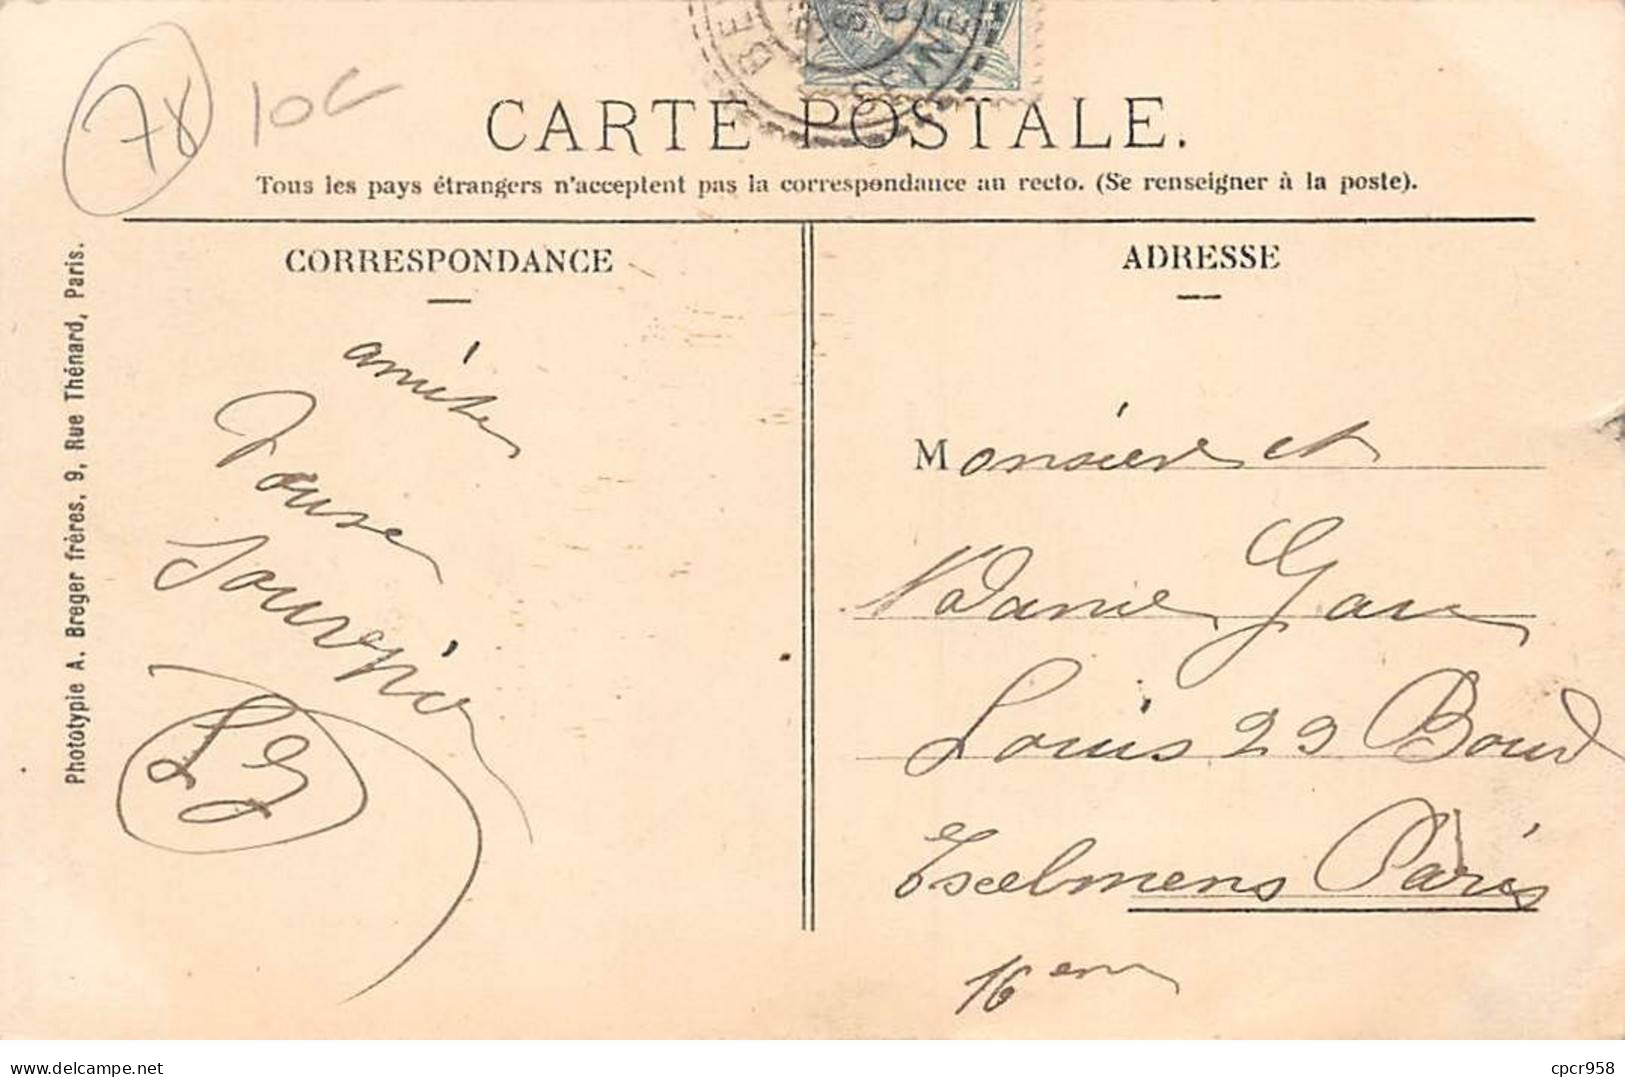 78 10C
CARTE POSTALE.
Tous les pays étrangers n'acceptent pas la correspondance au recto. (Se renseigner à la poste).
CORRESPONDANCE
amitiés
LG
Phototypie A. Breger frères, 9, Rue Thénard, Paris.
ADRESSE
Monsieur et
Louis 29 Boud
Paris
16 em
delcampe.net
cpcr958